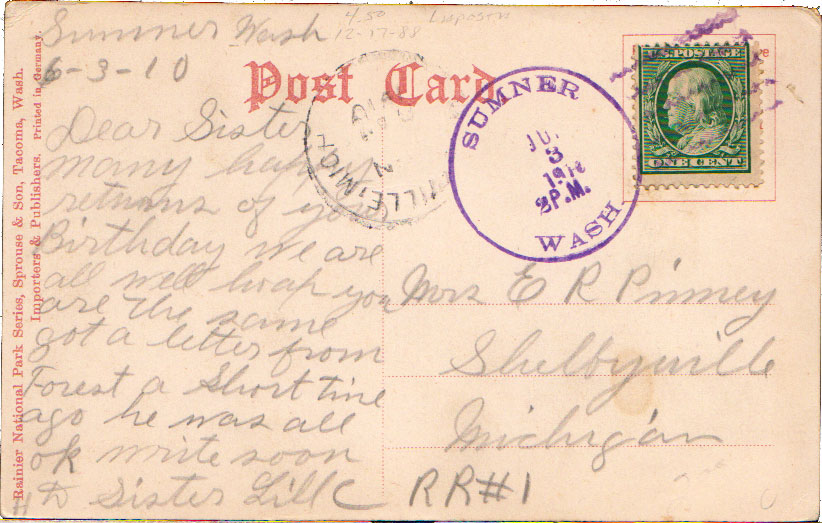 4.50
12-17-88
Sumner Wash
6-3-10
Dear Sister
many happy
returns of your
Birthday we are
all well hoah you
are the same
got a letter from
Forest a Short time
ago he was all
ok write soon
Sister Lill
Post Card
SUMNER
JU
3
1910
2 P.M.
WASH
VILLE, MICH
U.S. POSTAGE
ONE CENT
Mrs E R Pinney
Shelbyville
Michigan
RR#1
Rainier National Park Series, Sprouse & Son, Tacoma, Wash.
Importers & Publishers. Printed in Germany.